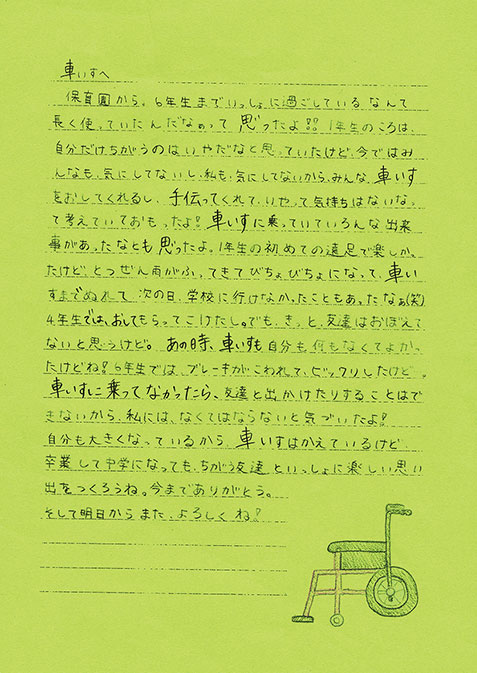 車いすへ
保育園から。6年生までいっしょに過ごしているなんて
長く使っていたんだなぁって思ったよ!! 1年生のころは、
自分だけちがうのはいやだなと思っていたけど、今ではみ
んなも、気にしてないし、私も、気にしてないから、みんな、車いす
をおしてくれるし、手伝ってくれて、いやって気持ちはないな
て考えていておもったよ! 車いすに乗っていていろんな出来
事があったなとも思ったよ。1年生の初めての遠足で楽しかっ
たけど、とつぜん雨がふってきてびちょびちょになって、車い
すまでぬれて 次の日、学校に行けなかったこともあったなぁ(笑)
4年生では、おしてもらってこけたし。でも、きっと、友達はおぼえて
ないと思うけど。あの時、車いすも自分も何もなくてよかっ
たけどね! 6年生では、ブレーキがこわれて、ビックリしたけど。
車いすに乗ってなかったら、友達と出かけたりすることはで
きないから、私には、なくてはならないと気づいたよ!
自分も大きくなっているから、車いすはかえているけど
卒業して中学になっても、ちがう友達といっしょに楽しい思い
出をつくろうね。今までありがとう。
そして明日からまた、よろしくね!